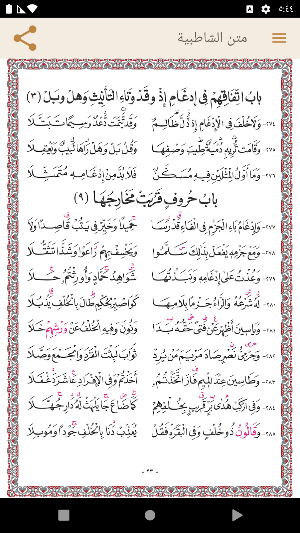 ٥:٤٤
متن الشاطبية
بابُ اتفاقهم في إدغام إذ وقد وتاء التأنيث وهل وبل (٣)
٢٧٤- ولا خلف في الإدغام إذ ذل ظالم وقد تيمت دعد وسيما تبتلا
٢٧٥- وقامت تريه دمية طيب وصفها وقل بل وهل راها لبيب ويعقلا
٢٧٦- وما أول المثلين فيه مسكن فلا بد من إدغامه متمثلا
باب حروف قربت مخارجها (٩)
٢٧٧- وإدغام باء الجزم في الفاء قد رسا حميدا وخير في يتب قاصدا ولا
٢٧٨- ومع جزمه يفعل بذلك سلموا ونخسف بهم راعوا وشذا تثقلا
٢٧٩- وعذت على إدغامه ونبذتها شواهد حماد وأورثتمو حلا
٢٨٠- له شرعه والراء جزما بلامها كواصبر لحكم طال بالخلف يذبلا
٢٨١- وياسين أظهر عن فتى حقه بدا ونون وفيه الخلف عن ورشهم خلا
٢٨٢- وحرمي نصر صاد مريم من يرد ثواب لبثت الفرد والجمع وصلا
٢٨٣- وطاسين عند الميم فاز اتخذتم أخذتم وفي الإفراد عاشر دغفلا
٢٨٤- وفي اركب هدى بر قريب بخلفهم كما ضاع جا يلهث له دار جهلا
٢٨٥- وقالون ذو خلف وفي البقره فقل يعذب دنا بالخلف جودا وموبلا
- ٢٣ -